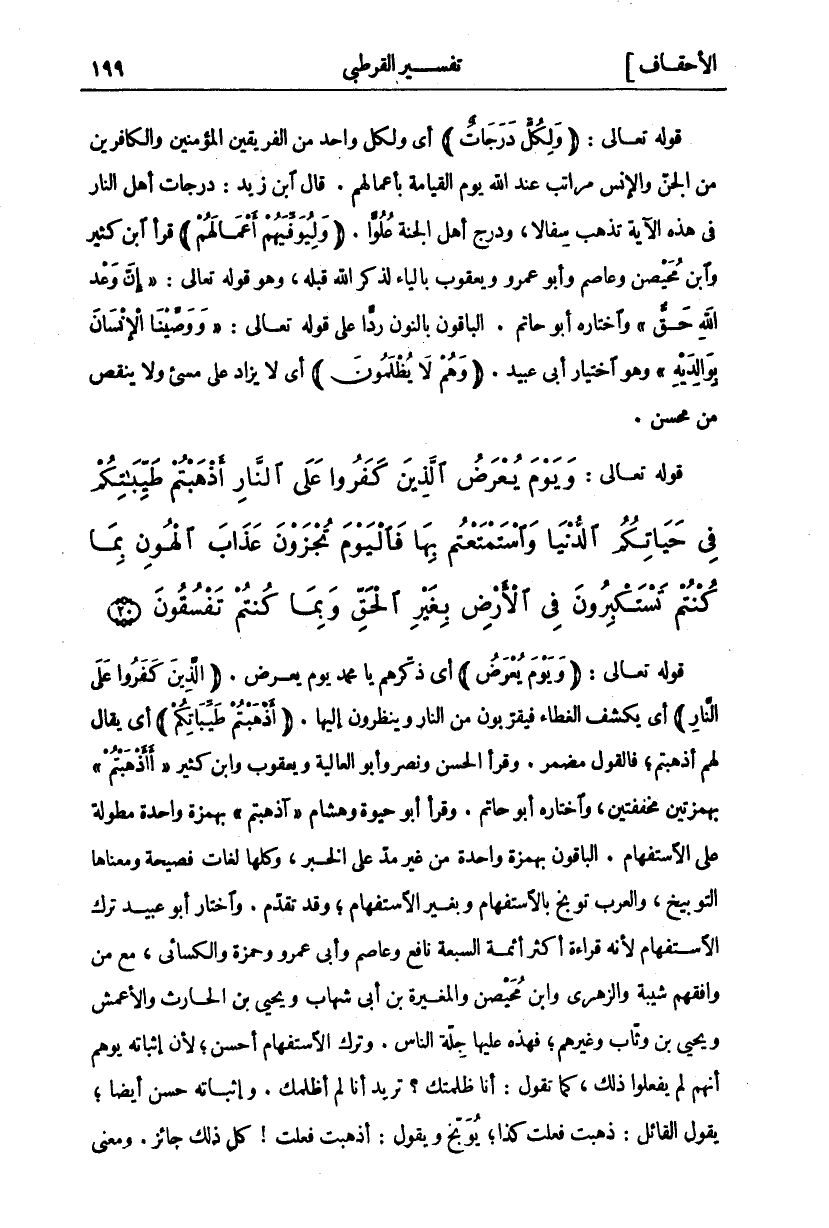 الأحقاف ] تفسير القرطبى ١٩٩
قوله تعالى : ﴿ وَلِكُلٍّ دَرَجَاتٌ ﴾ أى ولكل واحد من الفريقين المؤمنين والكافرين
من الجنّ والإنس مراتب عند الله يوم القيامة بأعمالهم . قال آبن زيد : درجات أهل النار
فى هذه الآية تذهب سِفالا، ودرج أهل الجنة عُلُوًّا . ﴿ وَلِيُوَفِّيَهُمْ أَعْمَالَهُمْ ﴾ قرأ آبن كثير
وآبن مُحَيْصن وعاصم وأبو عمرو ويعقوب بالياء لذكر الله قبله، وهو قوله تعالى : « إنّ وَعْد
اللهِ حَقٌّ » وآختاره أبو حاتم . الباقون بالنون ردًّا على قوله تعالى : « وَوَصَّيْنَا الْإِنْسَانَ
بِوَالِدَيْهِ » وهو آختيار أبى عبيد . ﴿ وَهُمْ لَا يُظْلَمُونَ ﴾ أى لا يزاد على مسىء ولا ينقص
من محسن .
قوله تعالى : وَيَوْمَ يُعْرَضُ ٱلَّذِينَ كَفَرُوا عَلَى ٱلنَّارِ أَذْهَبْتُمْ طَيِّبَـٰتِكُمْ
فِى حَيَاتِكُمُ ٱلدُّنْيَا وَٱسْتَمْتَعْتُم بِهَا فَٱلْيَوْمَ تُجْزَوْنَ عَذَابَ ٱلْهُونِ بِمَا
كُنْتُمْ تَسْتَكْبِرُونَ فِى ٱلْأَرْضِ بِغَيْرِ ٱلْحَقِّ وَبِمَا كُنتُمْ تَفْسُقُونَ ﴿٢٠﴾
قوله تعالى : ﴿ وَيَوْمَ يُعْرَضُ ﴾ أى ذكّرهم يا محمد يوم يعرض . ﴿ الَّذِينَ كَفَرُوا عَلَى
النَّارِ ﴾ أى يكشف الغطاء فيقرّبون من النار وينظرون إليها . ﴿ أَذْهَبْتُمْ طَيِّبَاتِكُمْ ﴾ أى يقال
لهم أذهبتم؛ فالقول مضمر . وقرأ الحسن ونصر وأبو العالية ويعقوب وابن كثير « أَأَذْهَبْتُمْ »
بهمزتين مخففتين، وآختاره أبو حاتم . وقرأ أبو حيوة وهشام « آذهبتم » بهمزة واحدة مطولة
على الآستفهام . الباقون بهمزة واحدة من غير مدّ على الخبر، وكلها لغات فصيحة ومعناها
التوبيخ، والعرب توبخ بالآستفهام وبغير الآستفهام؛ وقد تقدّم . وآختار أبو عبيد ترك
الآستفهام لأنه قراءة أكثر أئمة السبعة نافع وعاصم وأبى عمرو وحمزة والكسائى، مع من
وافقهم شيبة والزهرى وابن مُحَيْصن والمغيرة بن أبى شهاب ويحيى بن الحارث والأعمش
ويحيى بن وثّاب وغيرهم؛ فهذه عليها جِلّة الناس . وترك الآستفهام أحسن؛ لأن إثباته يوهم
أنهم لم يفعلوا ذلك، كما تقول : أنا ظلمتك ؟ تريد أنا لم أظلمك . وإثباته حسن أيضا؛
يقول القائل : ذهبت فعلت كذا؛ يُوَبِّخ ويقول : أذهبت فعلت ! كل ذلك جائز . ومعنى